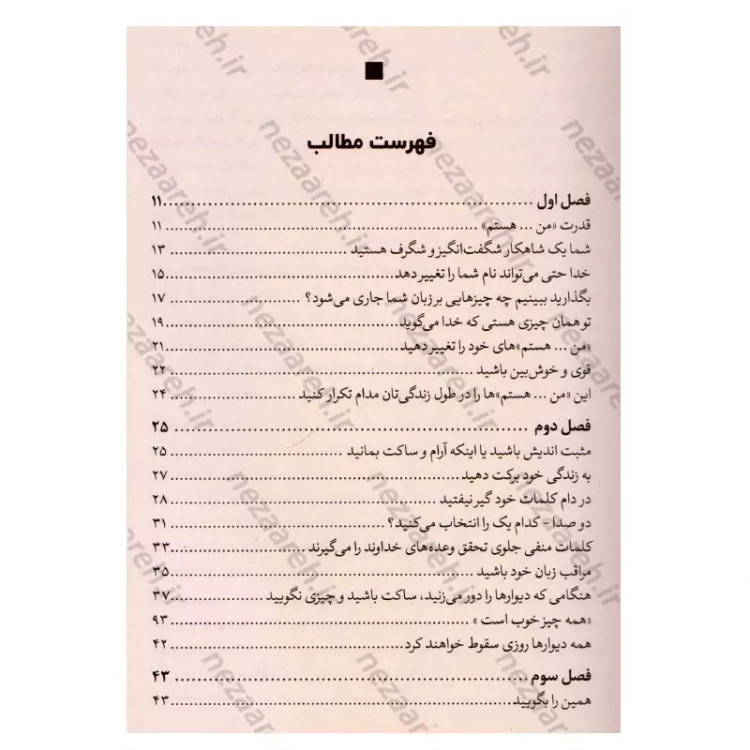 فهرست مطالب
فصل اول ۱۱
قدرت «من ... هستم» ۱۱
شما یک شاهکار شگفت‌انگیز و شگرف هستید ۱۳
خدا حتی می‌تواند نام شما را تغییر دهد ۱۵
بگذارید ببینیم چه چیزهایی بر زبان شما جاری می‌شود؟ ۱۷
تو همان چیزی هستی که خدا می‌گوید ۱۹
«من ... هستم»های خود را تغییر دهید ۲۱
قوی و خوش‌بین باشید ۲۲
این «من ... هستم»ها را در طول زندگی‌تان مدام تکرار کنید ۲۴
فصل دوم ۲۵
مثبت اندیش باشید یا اینکه آرام و ساکت بمانید ۲۵
به زندگی خود برکت دهید ۲۷
در دام کلمات خود گیر نیفتید ۲۸
دو صدا - کدام یک را انتخاب می‌کنید؟ ۳۱
کلمات منفی جلوی تحقق وعده‌های خداوند را می‌گیرند ۳۳
مراقب زبان خود باشید ۳۵
هنگامی که دیوارها را دور می‌زنید، ساکت باشید و چیزی نگویید ۳۷
«همه چیز خوب است» ۹۳
همه دیوارها روزی سقوط خواهند کرد ۴۲
فصل سوم ۴۳
همین را بگویید ۴۳
nezaareh.ir